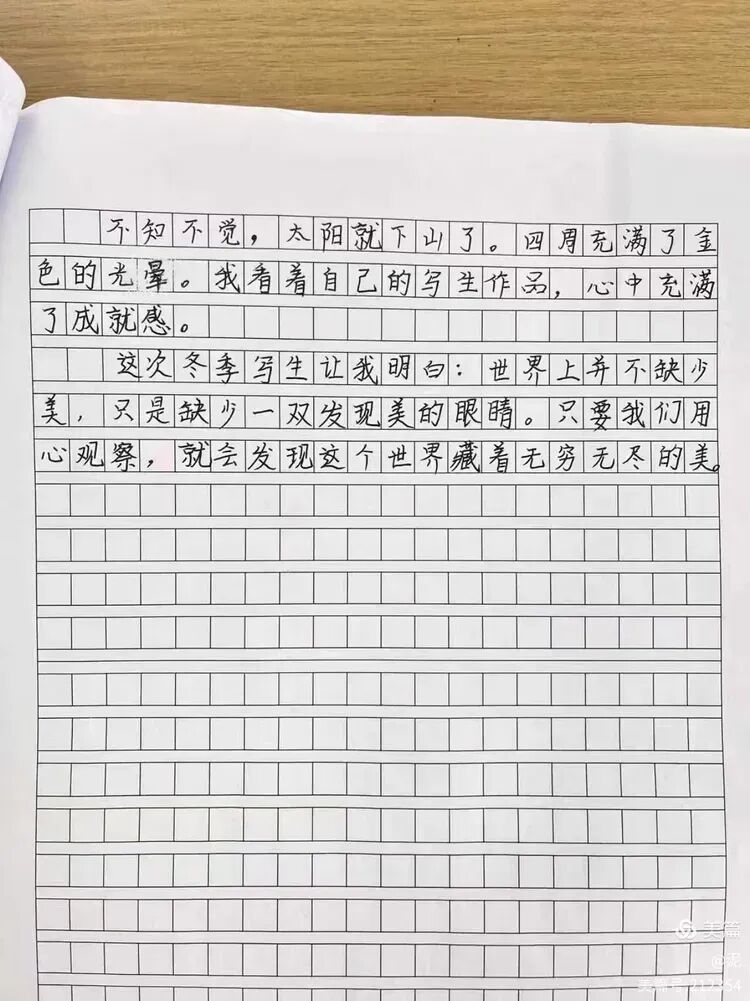 不知不觉，太阳就下山了。四周充满了金
色的光晕。我看着自己的写生作品，心中充满
了成就感。
这次冬季写生让我明白：世界上并不缺少
美，只是缺少一双发现美的眼睛。只要我们用
心观察，就会发现这个世界藏着无穷无尽的美。
美篇
@泥
美篇号 212354